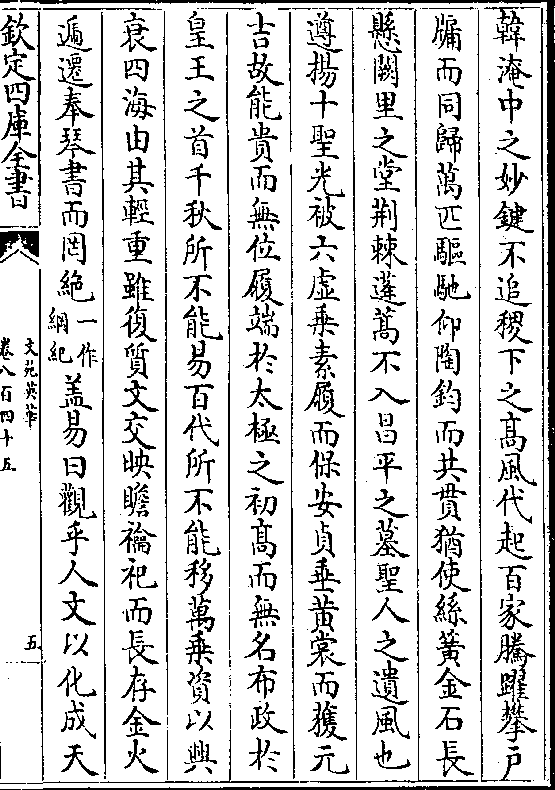 韓淹中之妙鍵不追稷下之髙風代起百家騰躍攀戶
牖而同歸萬匹驅馳仰陶鈞而共貫猶使絲簧金石長
懸闕里之堂荆棘蓬蒿不入昌平之墓聖人之遺風也
遵揚十聖光被六虛乗素履而保安貞垂黄裳而獲元
吉故能貴而無位履端於太極之初髙而無名布政於
皇王之首千秋所不能易百代所不能移萬乗資以興
衰四海由其輕重雖復質文交映瞻禴祀而長存金火
遞遷奉琴書而罔絶一作綱紀盖易曰觀乎人文以化成天
欽定四庫全書
文苑英華
卷八百四十五
五